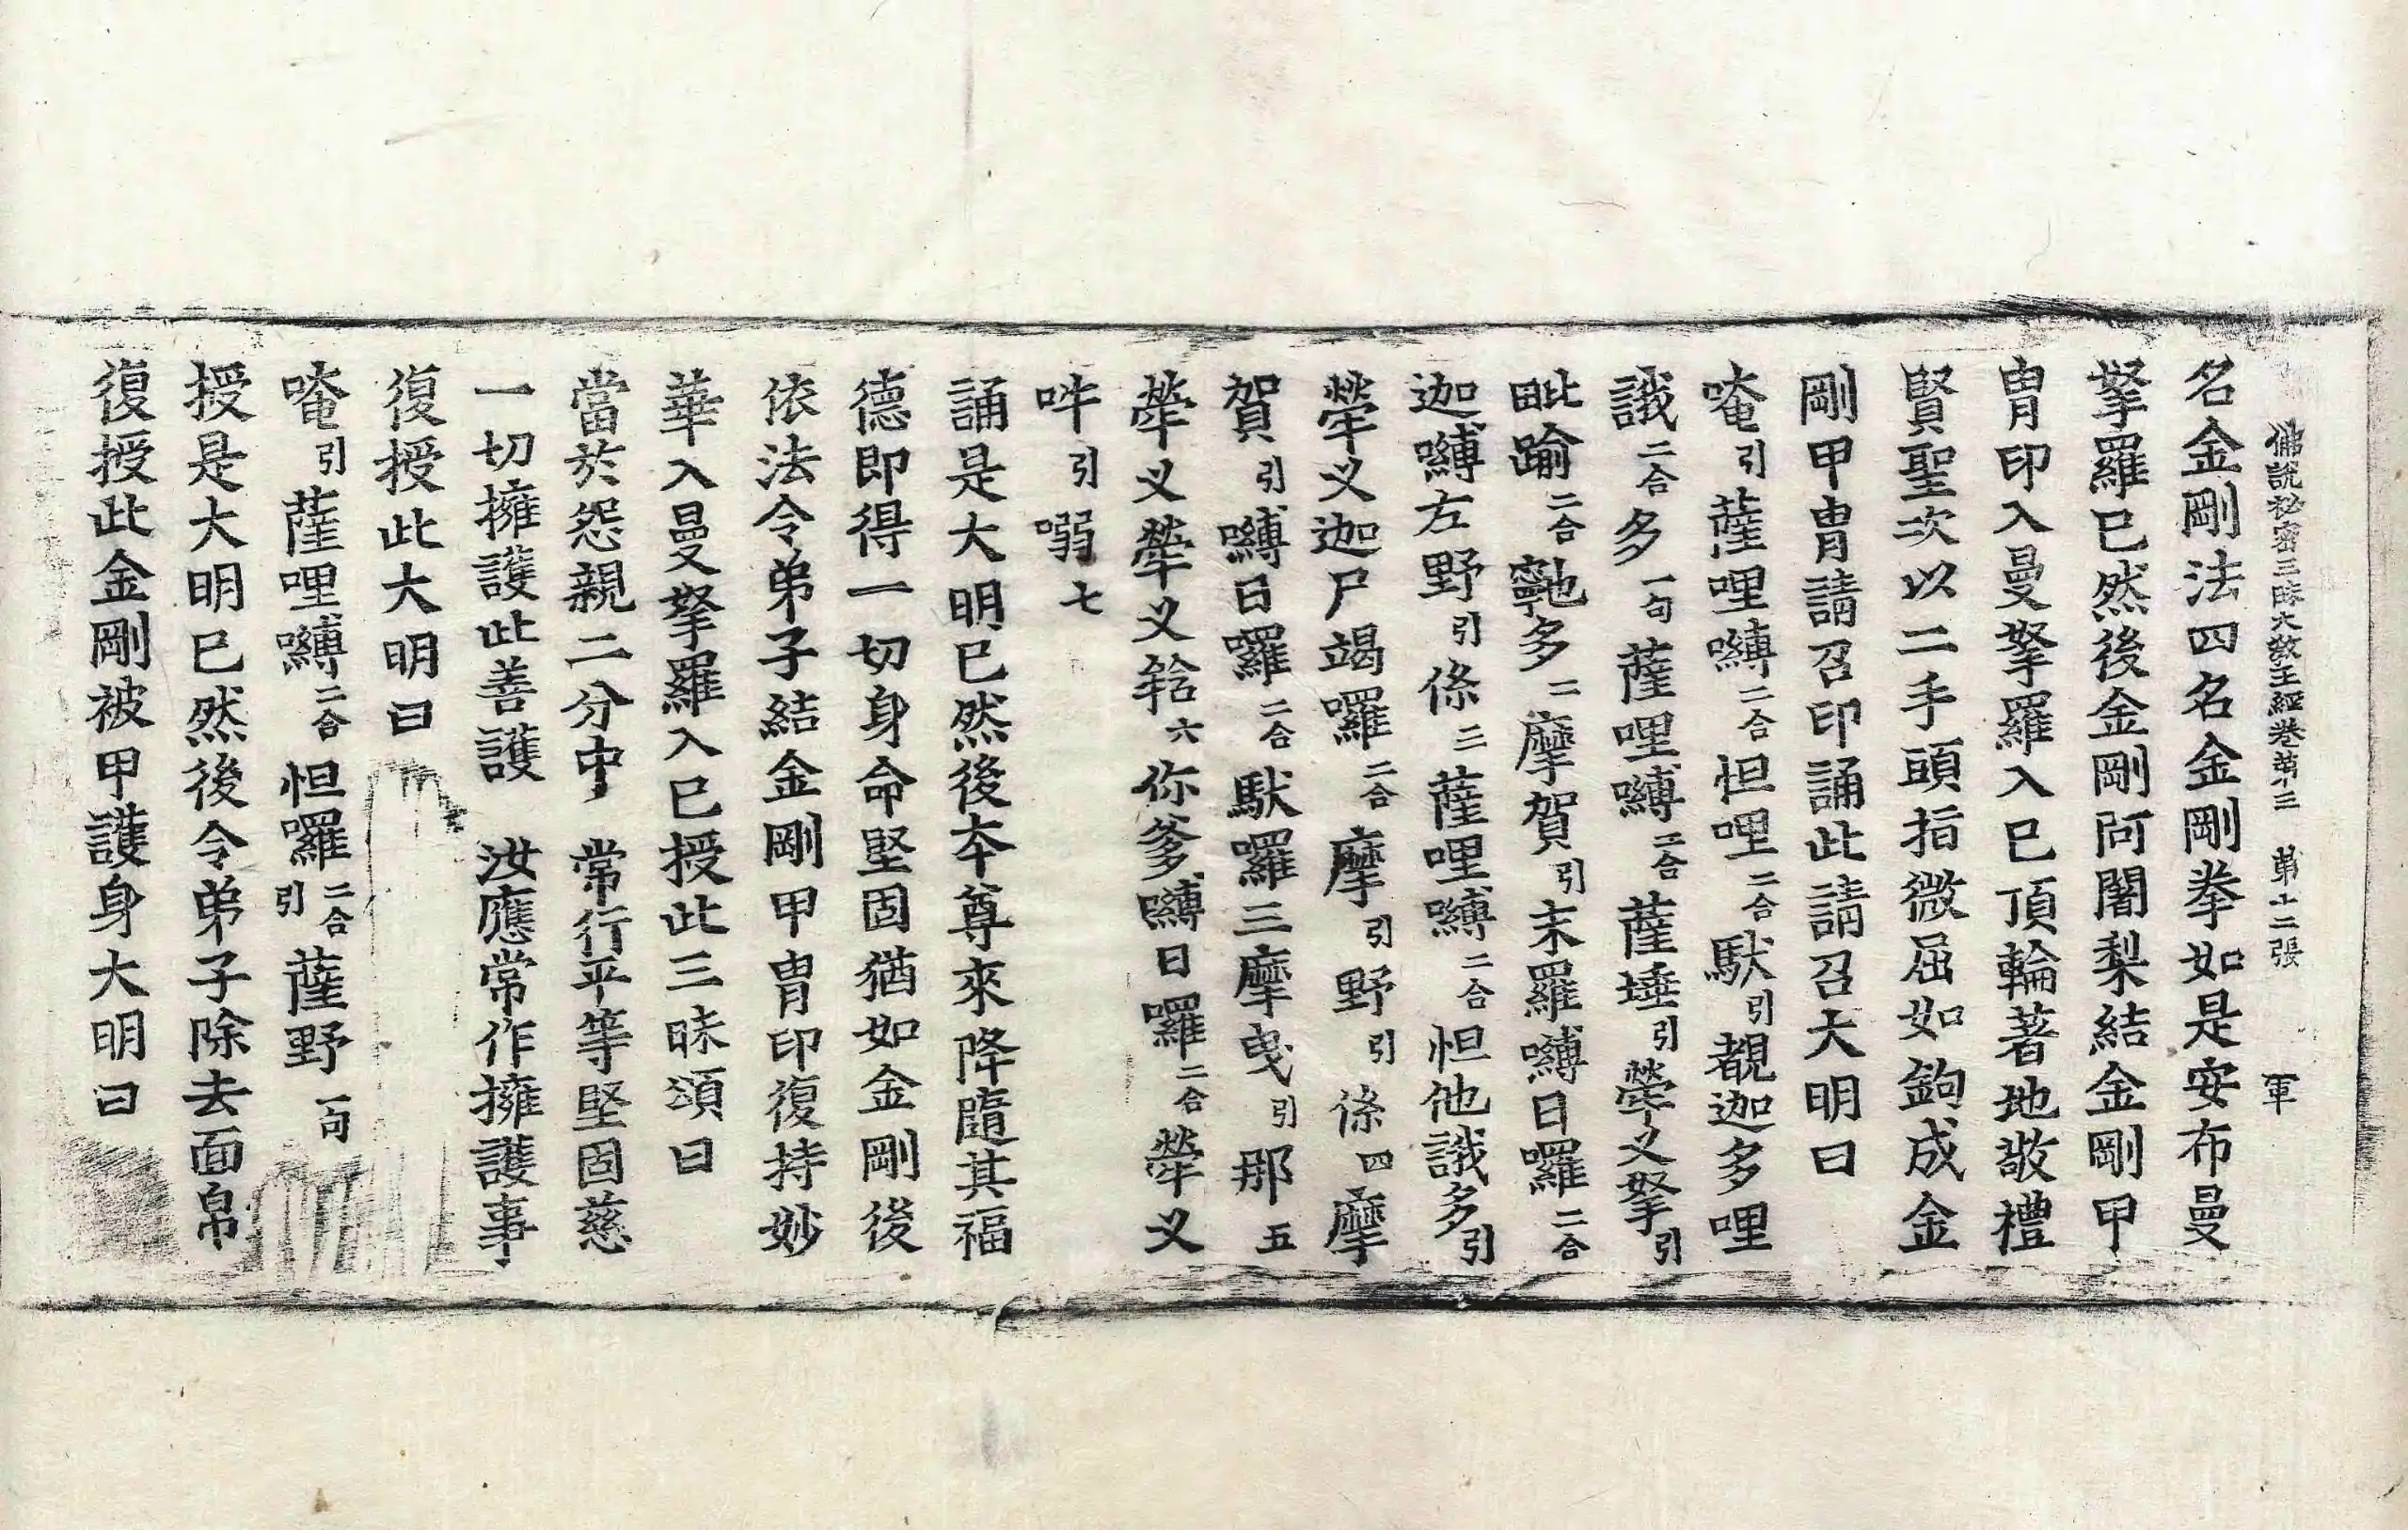 佛說祕密三昧大教王經卷第三 第十二張 軍
名金剛法四名金剛拳如是安布曼
拏羅已然後金剛阿闍梨結金剛甲
冑印入曼拏羅入已頂輪著地敬禮
賢聖次以二手頭指微屈如鉤成金
剛甲冑請召印誦此請召大明曰
唵引薩哩嚩二合怛哩二合馱引覩迦多哩
誐二合多一句薩哩嚩二合薩埵引犖叉拏引
毗踰二合多二摩賀引末羅嚩日囉二合
迦嚩左野引倏三薩哩嚩二合怛他誐多引
犖叉迦尸竭囉二合摩引野引倏四摩
賀引嚩日囉二合馱羅三摩曳引那五
犖叉犖叉𤚥六你爹嚩日囉二合犖叉
吽引嗍七
誦是大明已然後本尊來降隨其福
德即得一切身命堅固猶如金剛後
依法令弟子結金剛甲冑印復持妙
華入曼拏羅入已授此三昧頌曰
當於怨親二分中 常行平等堅固慈
一切擁護此善護 汝應常作擁護事
復授此大明曰
唵引薩哩嚩二合怛囉二合引薩野一句
授是大明已然後令弟子除去面帛
復授此金剛被甲護身大明曰